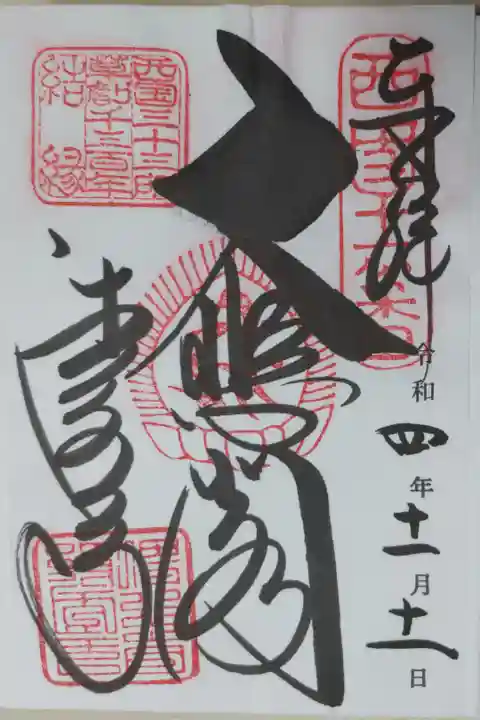 奉拝
西国十六番
令和四年十一月十一日
大悲閣
西国三十三所
草創千三百年
結縁
清水寺